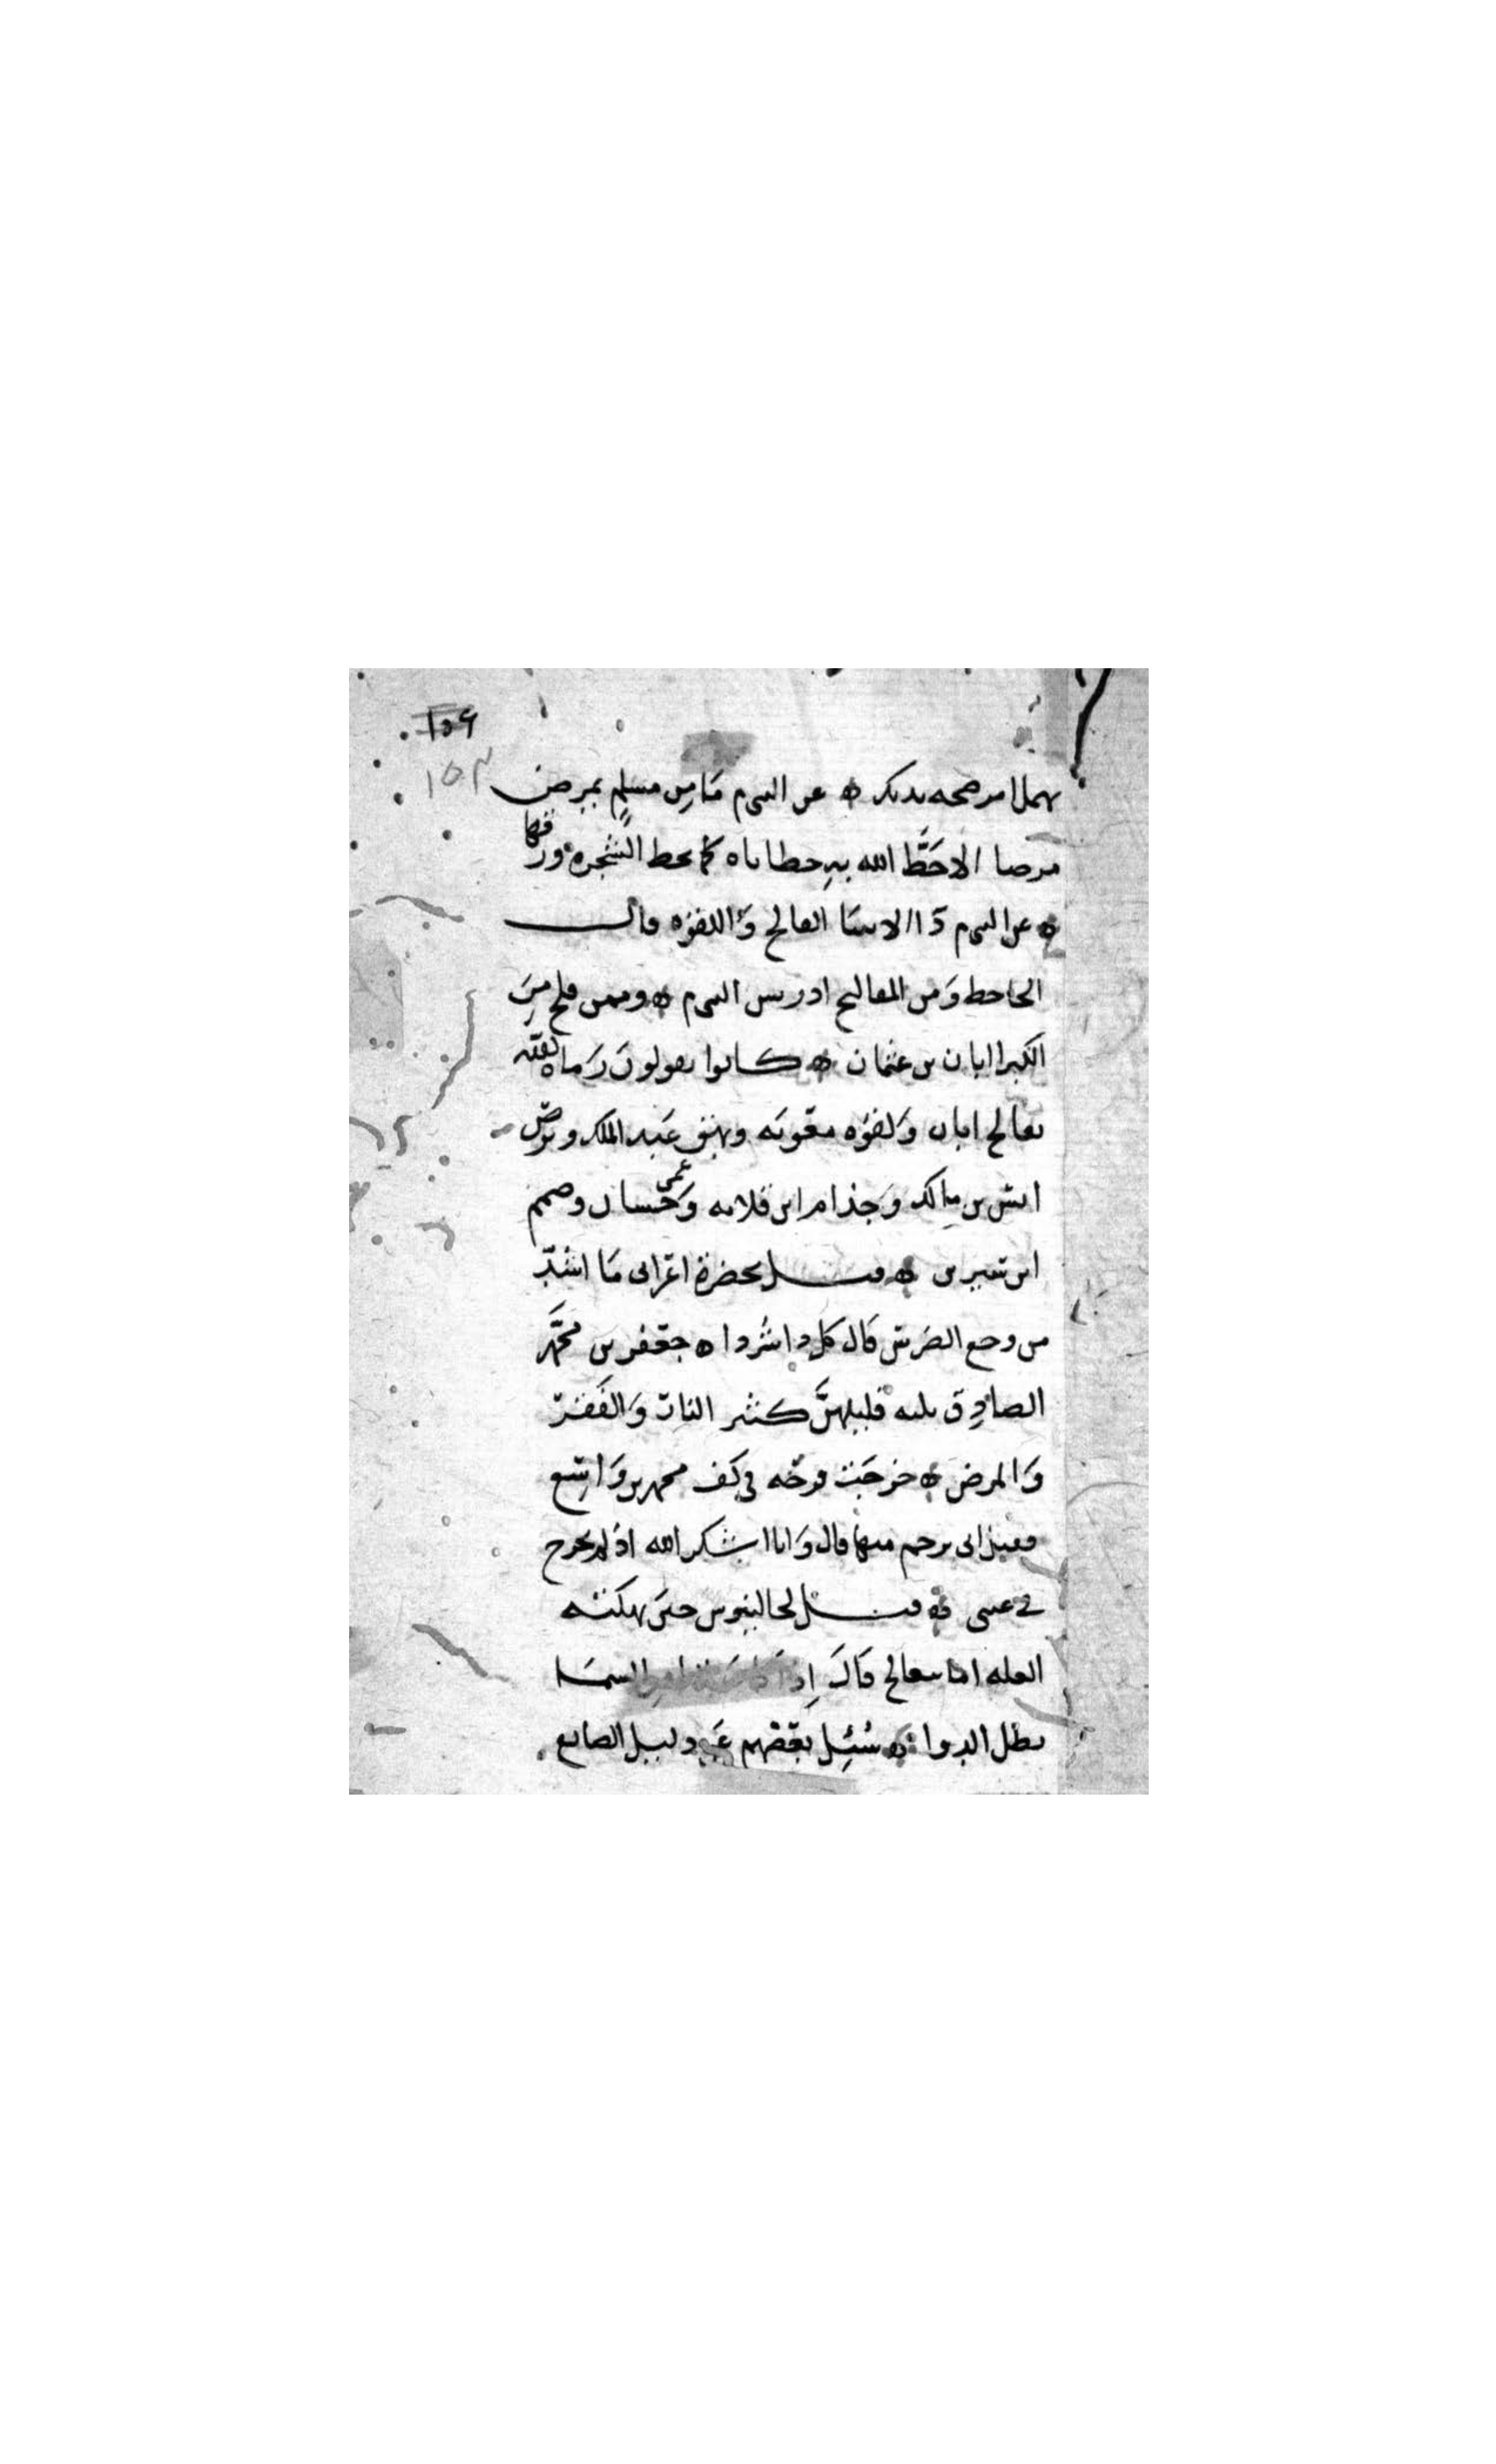 ١٥٤
١٥٣
بهملا من صحه بدنك ه عن النبي م مَا مِن مسلمٍ يمرِض
مرضا الا حَطَّ الله بهِ خطاياه كما يحط الشجره ورقها
ه عن النبي م دَا الانبيَا الفالج وَاللقوَه قال
الجاحظ وَمن المفاليج ادريس النبي م ه وممن فلج مِنَ
الكبرا ابان بن عثمان ه كانوا يقولونَ رَماه الله
بفالج ابان وَلقوَه معَويَه وبهق عَبد الملك وبرَص
انس بن مالك وَجذام ابن قلابه وَعمى حَسان وصمم
ابن سيرين ه قيل بحضرة اعرَابي مَا اشدّ
من وجع الضرس قال كل دا شرَ دا ه جعَفر بن محمَّد
الصادِق ثلثه قليلهنَّ كثير النار وَالفَقر
وَالمرض ه خرجَت قرحَه في كف محمد بن وَاسِع
فقيل اني نرحم منها قال وَانا اشكر الله اذ لم يخرج
في عيني ه قيل لجالينوس حينَ نهكته
العله اما تتعالج قالَ اِذا كانَ الدا مِن السمَا
بطل الدوا ه سُئِل بعَضهم عَن دليل الصانع